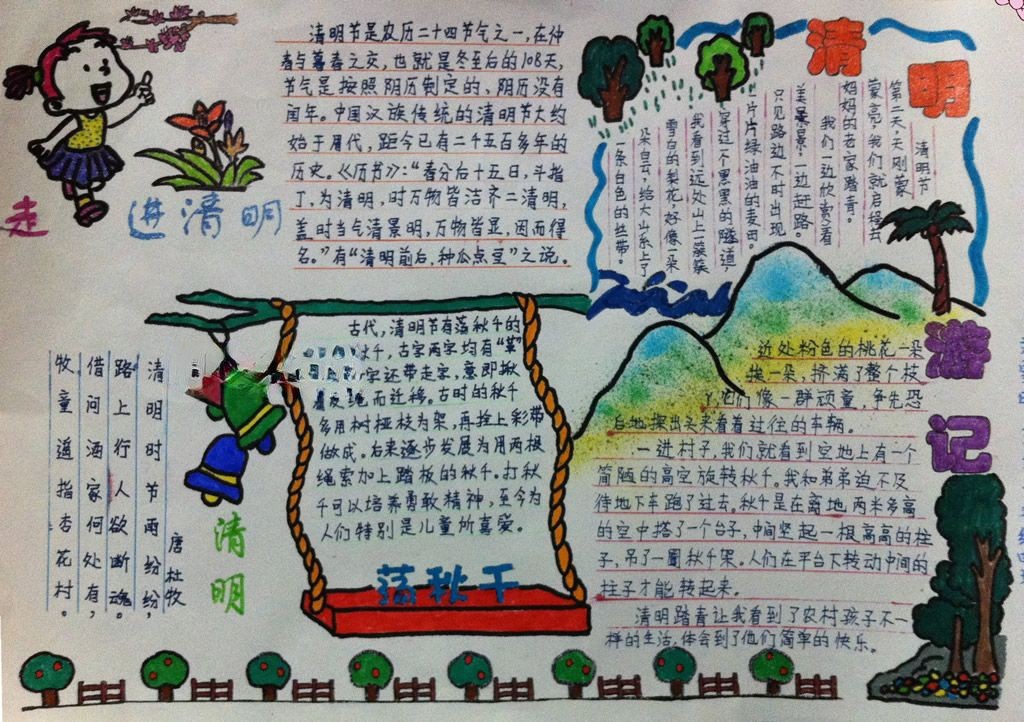 走进清明
清明节是农历二十四节气之一,在仲
春与暮春之交,也就是冬至后的108天,
节气是按照阴历制定的、阴历没有
闰年。中国汉族传统的清明节大约
始于周代,距今已有二千五百多年的
历史。《历节》:“春分后十五日,斗指
丁,为清明,时万物皆洁齐二清明,
盖时当气清景明,万物皆显,因而得
名。”有“清明前后,种瓜点豆”之说。
清明
唐杜牧
清明时节雨纷纷,
路上行人欲断魂。
借问酒家何处有,
牧童遥指杏花村。
古代,清明节有荡秋千的
秋千,古字两字均有“革”
字还带走字,意即揪
而迁移。古时的秋千
多用树桠枝为架,再拴上彩带
做成。后来逐步发展为用两根
绳索加上踏板的秋千。打秋
千可以培养勇敢精神,至今为
人们特别是儿童所喜爱。
荡秋千
清明游记
清明节
第二天,天刚蒙
蒙亮,我们就启程去
妈妈的老家踏青。
我们一边欣赏着
美景;一边赶路。
只见路边不时出现
片片绿油油的麦田。
穿过一个黑黑的隧道,
我看到远处山上一簇簇
雪白的梨花,好像一朵
朵白云,给大山系上了
一条白色的丝带。
近处粉色的桃花一朵
挨一朵,挤满了整个枝
它们像一群顽童,争先恐
后地探出头来看着过往的车辆。
一进村子,我们就看到空地上有一个
简陋的高空旋转秋千。我和弟弟迫不及
待地下车跑了过去。秋千是在离地两米多高
的空中搭了一个台子,中间竖起一根高高的柱
子,吊了一圈秋千架。人们在平台下转动中间的
柱子才能转起来。
清明踏青让我看到了农村孩子不一
样的生活,体会到了他们简单的快乐。